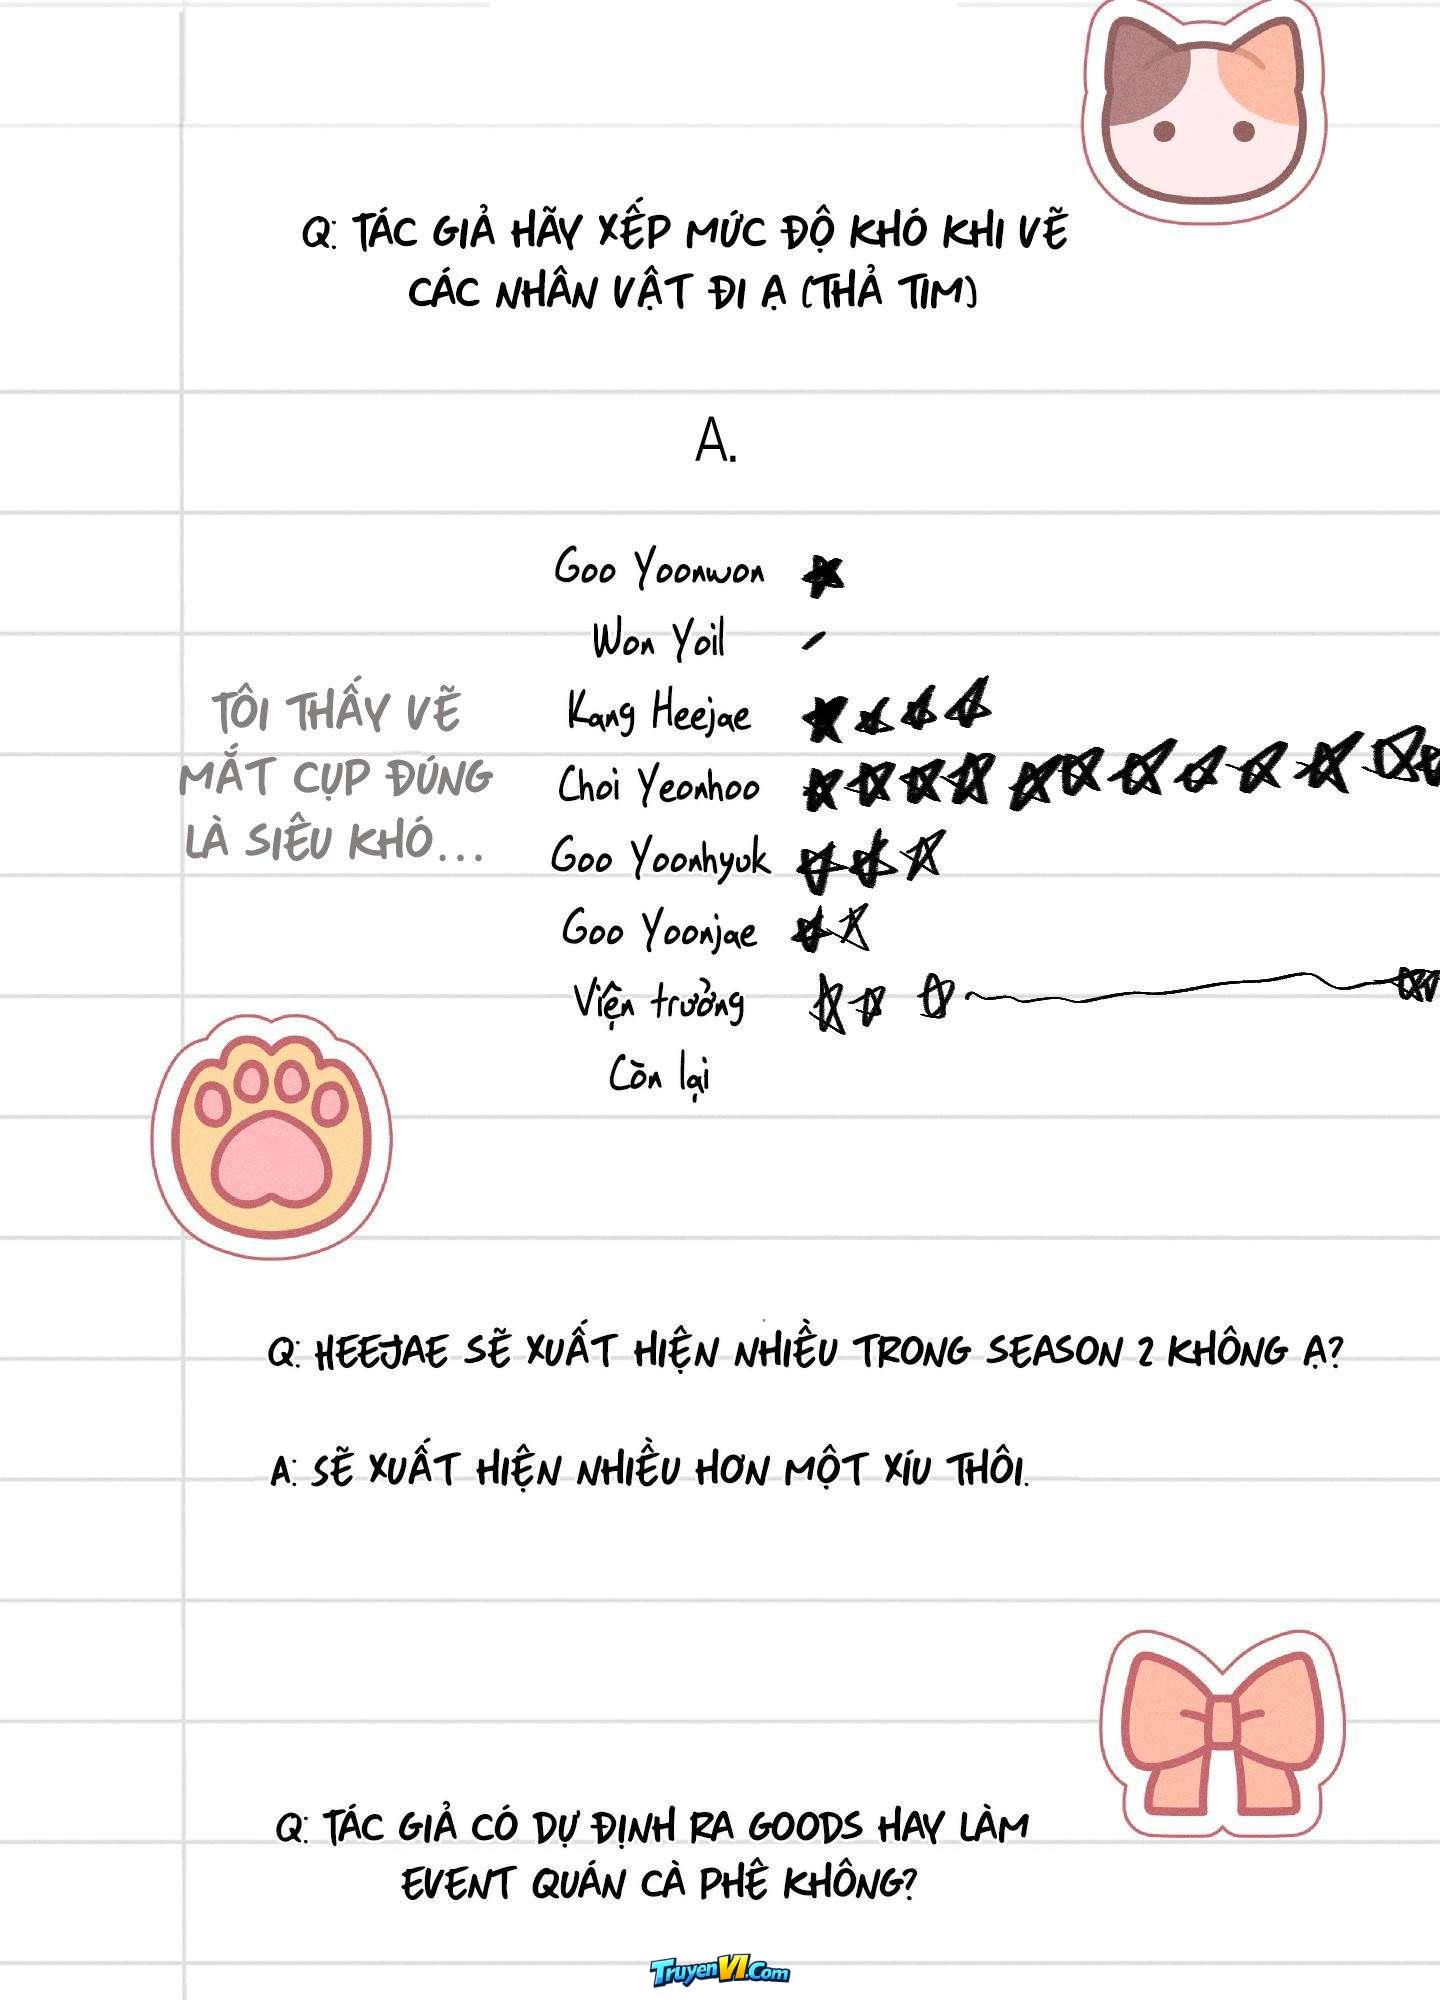 Q: TÁC GIẢ HÃY XẾP MỨC ĐỘ KHÓ KHI VẼ
CÁC NHÂN VẬT ĐI Ạ (THẢ TIM)
A.
Goo Yoonwon
Won Yoil
Kang Heejae
Choi Yeonhoo
Goo Yoonhyuk
Goo Yoonjae
Viện trưởng
Còn lại
TÔI THẤY VẼ
MẮT CỤP ĐÚNG
LÀ SIÊU KHÓ...
Q: HEEJAE SẼ XUẤT HIỆN NHIỀU TRONG SEASON 2 KHÔNG Ạ?
A: SẼ XUẤT HIỆN NHIỀU HƠN MỘT XÍU THÔI.
Q: TÁC GIẢ CÓ DỰ ĐỊNH RA GOODS HAY LÀM
EVENT QUÁN CÀ PHÊ KHÔNG?
TruyenVI.Com